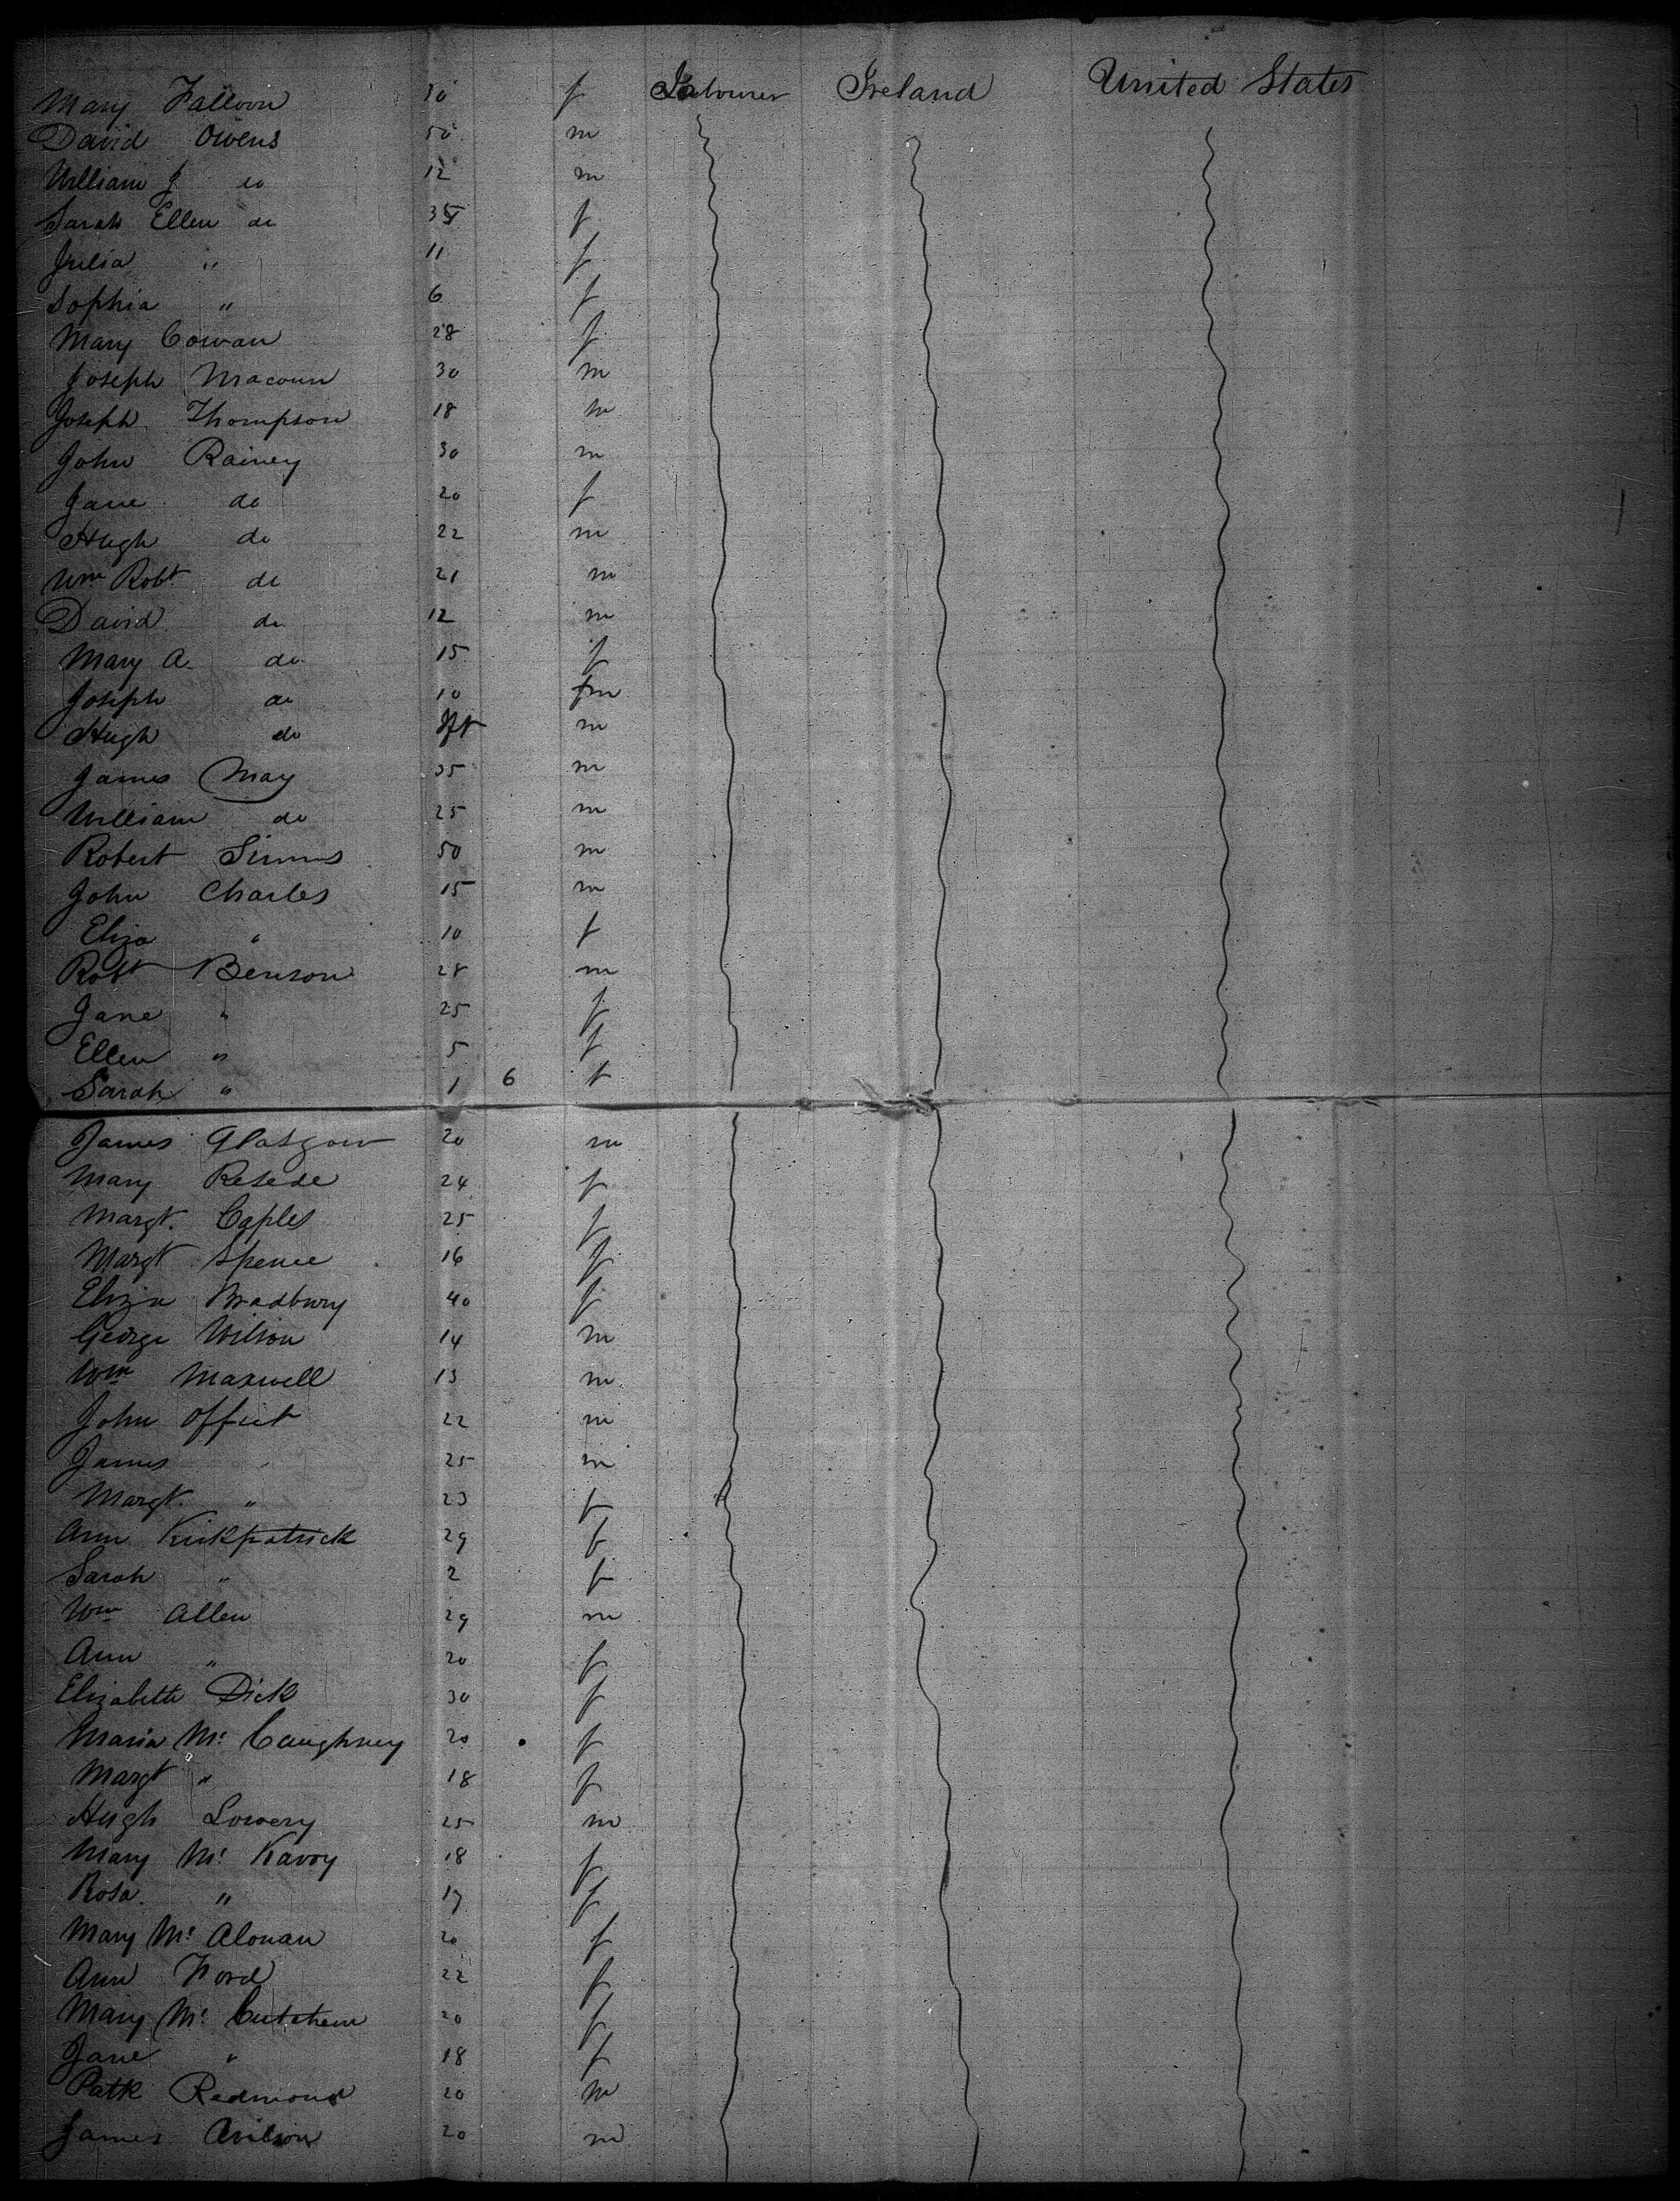 Mary Falloon 30 f Labourer Ireland United States
David Owens 50 m
William J do 12 m
Sarah Ellen do 35 f
Julia " 11 f
Sophia " 6 f
Mary Cowan 28 f
Joseph Macoun 30 m
Joseph Thompson 18 m
John Rainey 30 m
Jane do 20 f
Hugh do 22 m
Wm Robt do 21 m
David do 12 m
Mary A. do 15 f
Joseph do 10 m
Hugh do m
James May 35 m
William do 25 m
Robert Simms 50 m
John Charles 15 m
Eliza " 10 f
Robt Benson 28 m
Jane " 25 f
Ellen " 5 f
Sarah " 1 6 f
James Glasgow 20 m
Mary 24 f
Margt. Caples 25 f
Margt Spence 16 f
Eliza Bradbury 40 f
George Wilson 14 m
Wm Maxwell 13 m
John 22 m
James " 25 m
Margt. " 23 f
Ann Kirkpatrick 29 f
Sarah " 2 f
Wm Allen 29 m
Ann " 20 f
Elizabeth Dick 30 f
Maria Mc Caughney 20 f
Margt " 18 f
Hugh Lowery 25 m
Mary Mc Kavoy 18 f
Rosa " 17 f
Mary Mc Alonan 20 f
Ann Ford 22 f
Mary Mc Cutcheon 20 f
Jane " 18 f
Patk Redmond 20 m
James Wilson 20 m